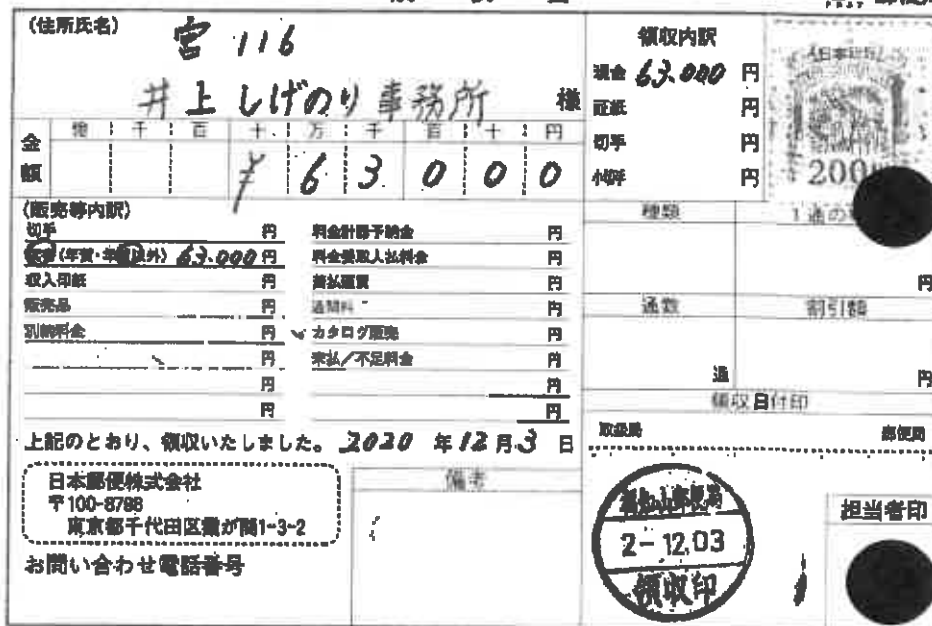 (住所氏名)
宮 116
井上しげのり事務所 様
金額
億 千 百 十 万 千 百 十 円
¥ 6 3 0 0 0
領収内訳
現金 63.000 円
証紙 円
切手 円
小切手 円
200
(販売等内訳)
切手 円
(年賀・年賀以外) 63.000 円
収入印紙 円
販売品 円
別納料金 円
円
円
円
料金計器予納金 円
料金受取人払料金 円
着払運賃 円
通関料 円
カタログ販売 円
未払/不足料金 円
円
円
種類
1通の
円
通数
通
割引額
円
領収日付印
取扱局 郵便局
上記のとおり、領収いたしました。 2020 年 12 月 3 日
日本郵便株式会社
〒100-8798
東京都千代田区霞が関1-3-2
お問い合わせ電話番号
備考
2-12.03
領収印
担当者印